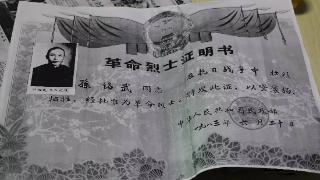 革命烈士证明书
孙铭武 同志 在抗日战争中 壮烈
牺牲,经批准为革命烈士,特发此证,以资褒扬。
中华人民共和国民政部
一九八三年 六月 三十日